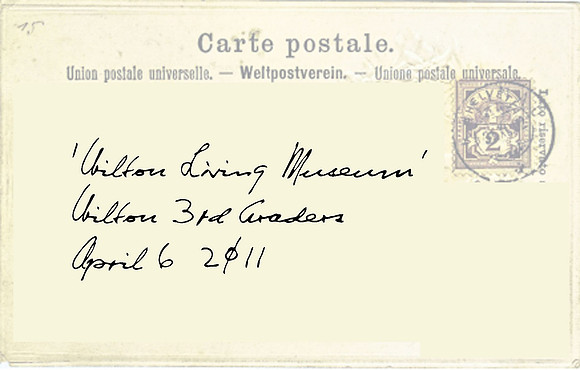 15
Carte postale.
Union postale universelle. — Weltpostverein. — Unione postale universale.
HELVETIA
2
'Wilton Living Museum'
Wilton 3rd Graders
April 6 2011